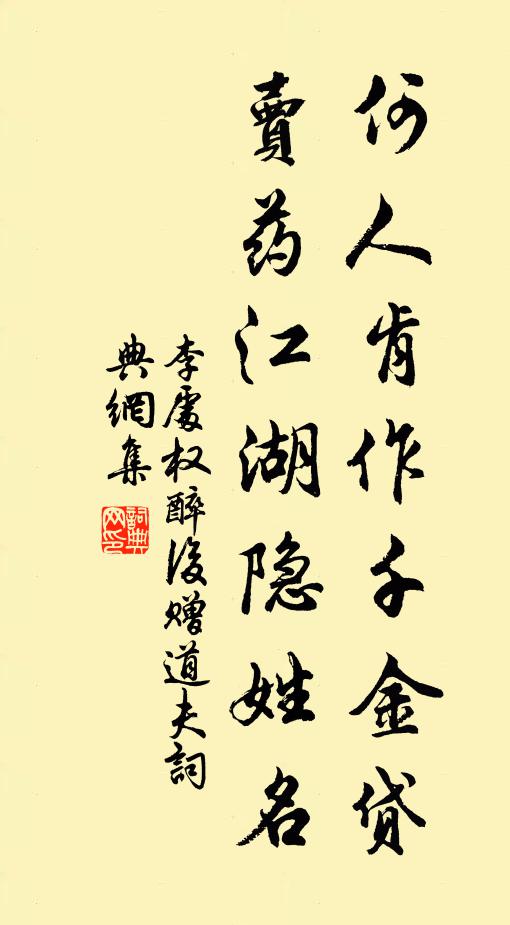 何人肯作千金贷
賣药江湖隐姓名
李處权醉後赠道夫詞
典網集
詞典网印